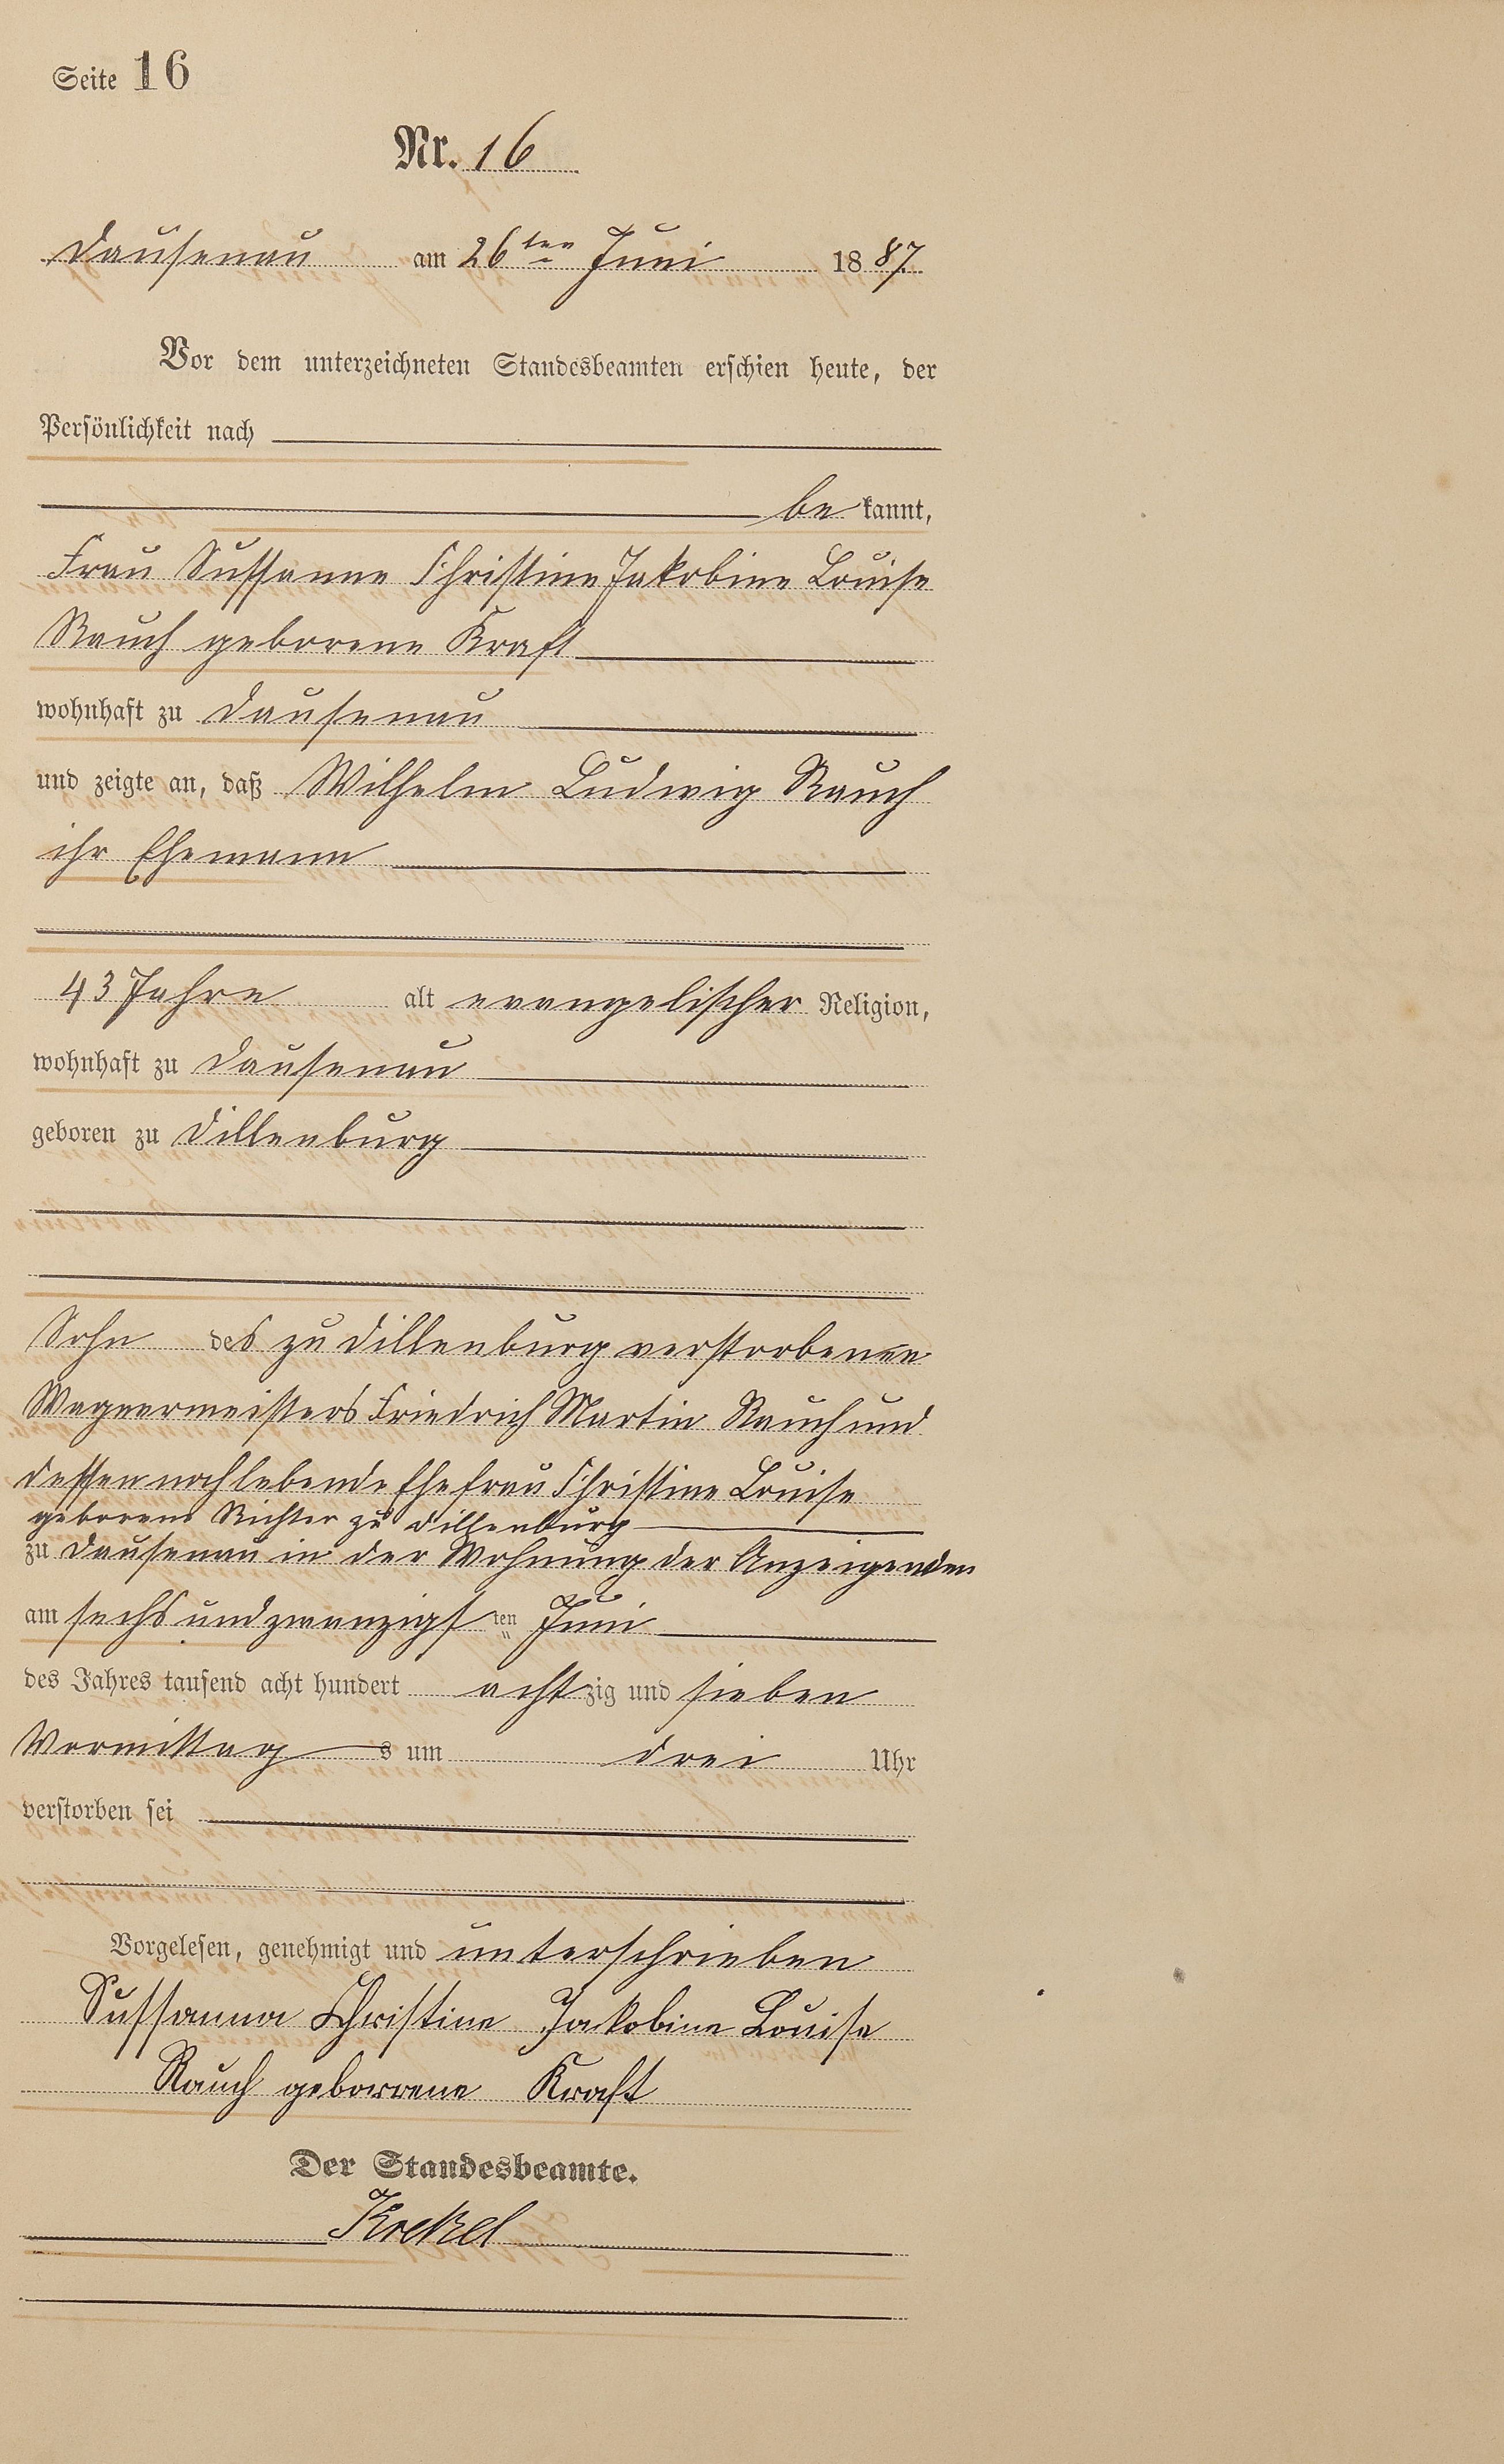 Seite 16
Nr. 16
Dausenau am 26ten Juni 1887.
Vor dem unterzeichneten Standesbeamten erschien heute, der
Persönlichkeit nach
be kannt,
Frau Sussanne Christine Jakobine Louise
Rauch geborene Kraft
wohnhaft zu Dausenau
und zeigte an, daß Wilhelm Ludwig Rauch
ihr Ehemann
43 Jahre alt evangelischer Religion,
wohnhaft zu Dausenau
geboren zu Dillenburg
Sohn des zu Dillenburg verstorbenen
Wagnermeisters Friedrich Martin Rauch und
dessen noch lebende Ehefrau Christine Louise
geborene Richter zu Dillenburg
zu Dausenau in der Wohnung der Anzeigenden
am sechs und zwanzigsten Juni
des Jahres tausend acht hundert achtzig und sieben
Vormittags um drei Uhr
verstorben sei
Vorgelesen, genehmigt und unterschrieben
Sussanna Christine Jakobine Louise
Rauch geborrene Kraft
Der Standesbeamte.
Krekel